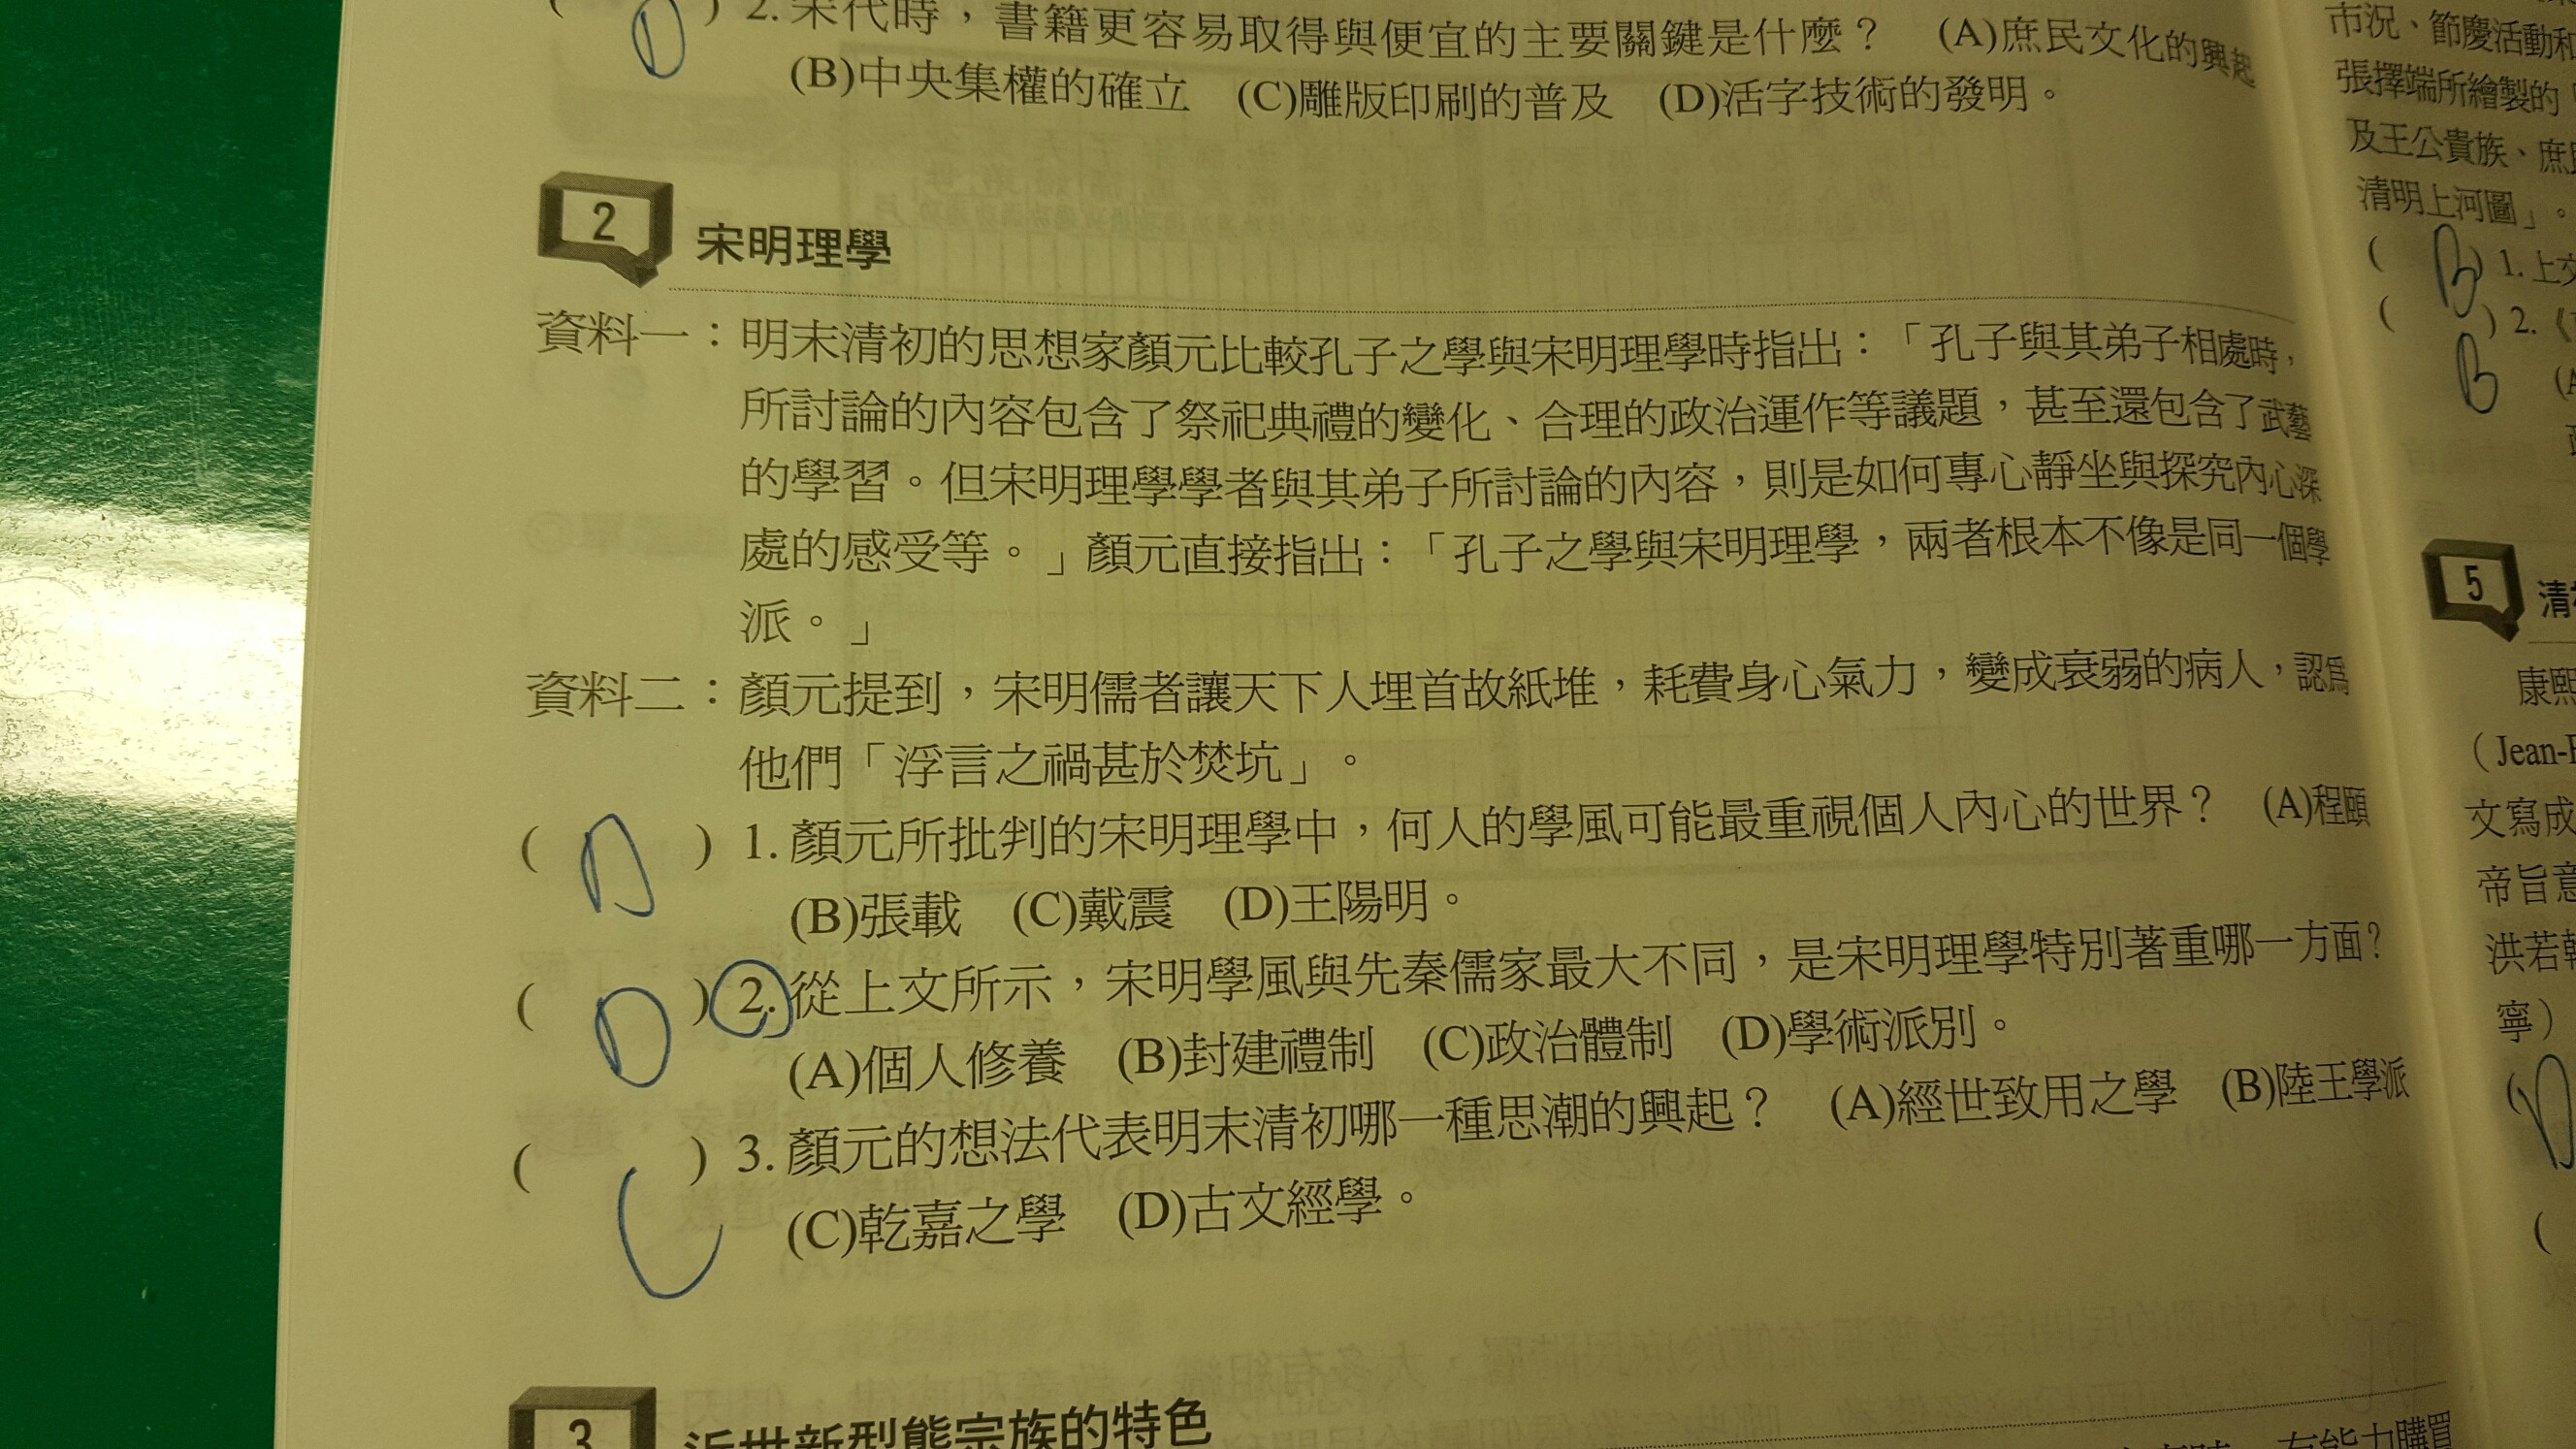 D
) 2. 宋代時，書籍更容易取得與便宜的主要關鍵是什麼？ (A)庶民文化的興起
(B)中央集權的確立 (C)雕版印刷的普及 (D)活字技術的發明。
2 宋明理學
資料一：明末清初的思想家顏元比較孔子之學與宋明理學時指出：「孔子與其弟子相處時，
所討論的內容包含了祭祀典禮的變化、合理的政治運作等議題，甚至還包含了武藝
的學習。但宋明理學學者與其弟子所討論的內容，則是如何專心靜坐與探究內心深
處的感受等。」顏元直接指出：「孔子之學與宋明理學，兩者根本不像是同一個學
派。」
資料二：顏元提到，宋明儒者讓天下人埋首故紙堆，耗費身心氣力，變成衰弱的病人，認為
他們「浮言之禍甚於焚坑」。
( D ) 1. 顏元所批判的宋明理學中，何人的學風可能最重視個人內心的世界？ (A)程頤
(B)張載 (C)戴震 (D)王陽明。
( D ) 2. 從上文所示，宋明學風與先秦儒家最大不同，是宋明理學特別著重哪一方面？
(A)個人修養 (B)封建禮制 (C)政治體制 (D)學術派別。
( C ) 3. 顏元的想法代表明末清初哪一種思潮的興起？ (A)經世致用之學 (B)陸王學派
(C)乾嘉之學 (D)古文經學。
3 近世新型態宗族的特色
有能力購買
市況、節慶活動和
張擇端所繪製的
及王公貴族、庶民
清明上河圖」。
( B ) 1. 上文
( B ) 2.
5 清初
康熙
（Jean-F
文寫成
帝旨意
洪若翰
寧）
( D
(